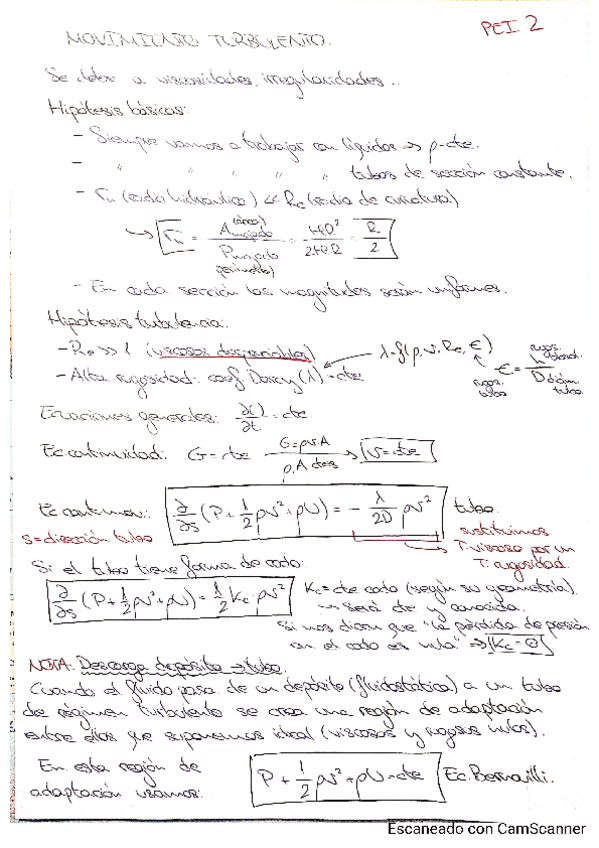 PEI 2
MOVIMIENTO TURBULENTO.
Se debe a viscosidades, irregularidades...
Hipótesis básicas:
- Siempre vamos a trabajar con líquidos → ρ=cte.
- " " " " " tubos de sección constante.
- rh (radio hidráulico) << Rc (radio de curvatura)
↳ rh = A mojado (área) / P mojado (perímetro) = πR² / 2πR = R/2
- En cada sección las magnitudes serán uniformes.
Hipótesis turbulencia:
- Re >> 1 (viscosos despreciables)
- Alta rugosidad: coef Darcy (λ) = cte ← λ=f(ρ, v, Re, ε)
ε = h / D
Ecuaciones generales: ∂()/∂t = cte
Ec continuidad: G = cte G=ρvA → ρ,A ctes v=cte
Ec contínuo: ∂/∂s (P + 1/2 ρv² + ρU) = - λ/2D ρv² tubo.
s=dirección tubo
sustituimos
T. viscoso por un
T. rugosidad.
Si el tubo tiene forma de codo:
∂/∂s (P + 1/2 ρv² + ρU) = 1/2 Kc ρv² Kc = cte codo (según su geometría).
→ será cte y conocida.
Si nos dicen que "la pérdida de presión
en el codo es nula" → Kc = 0
NOTA: Descarga depósito → tubo.
Cuando el fluido pasa de un depósito (fluidostática) a un tubo
de régimen turbulento se crea una región de adaptación
entre ellos que suponemos ideal (viscosos y rugosos nulos).
En esta región de
adaptación usamos:
P + 1/2 ρv² + ρU = cte Ec. Bernoulli.
Escaneado con CamScanner